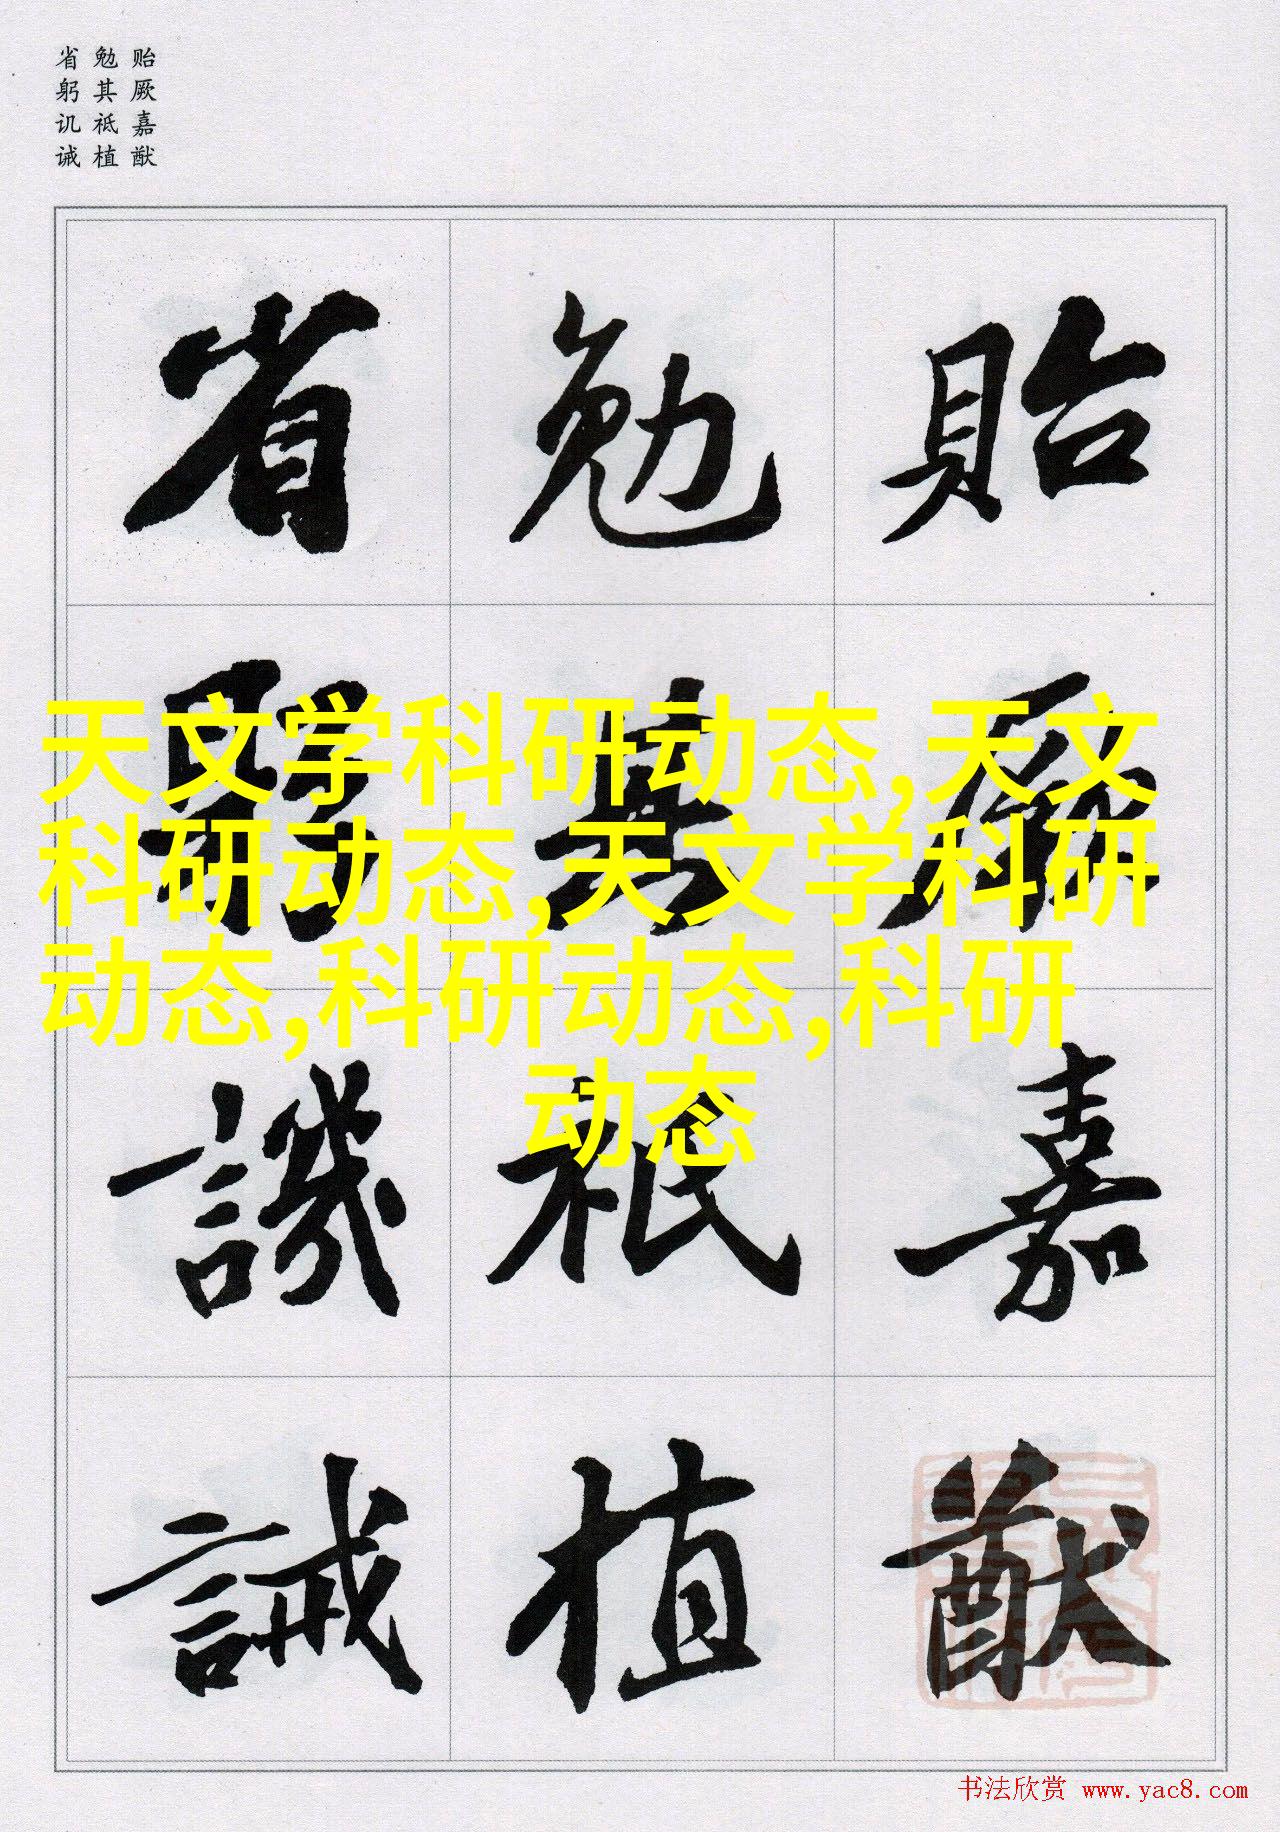 省 勉 贻
躬 其 厥
讥 祗 嘉
诫 植 猷
省 勉 貽
躬 其 厥
譏 祗 嘉
誡 植 猷
天文学科研动态,天文
科研动态,天文学科研
动态,科研动态,科研
动态
书法欣赏 www.yac8.com